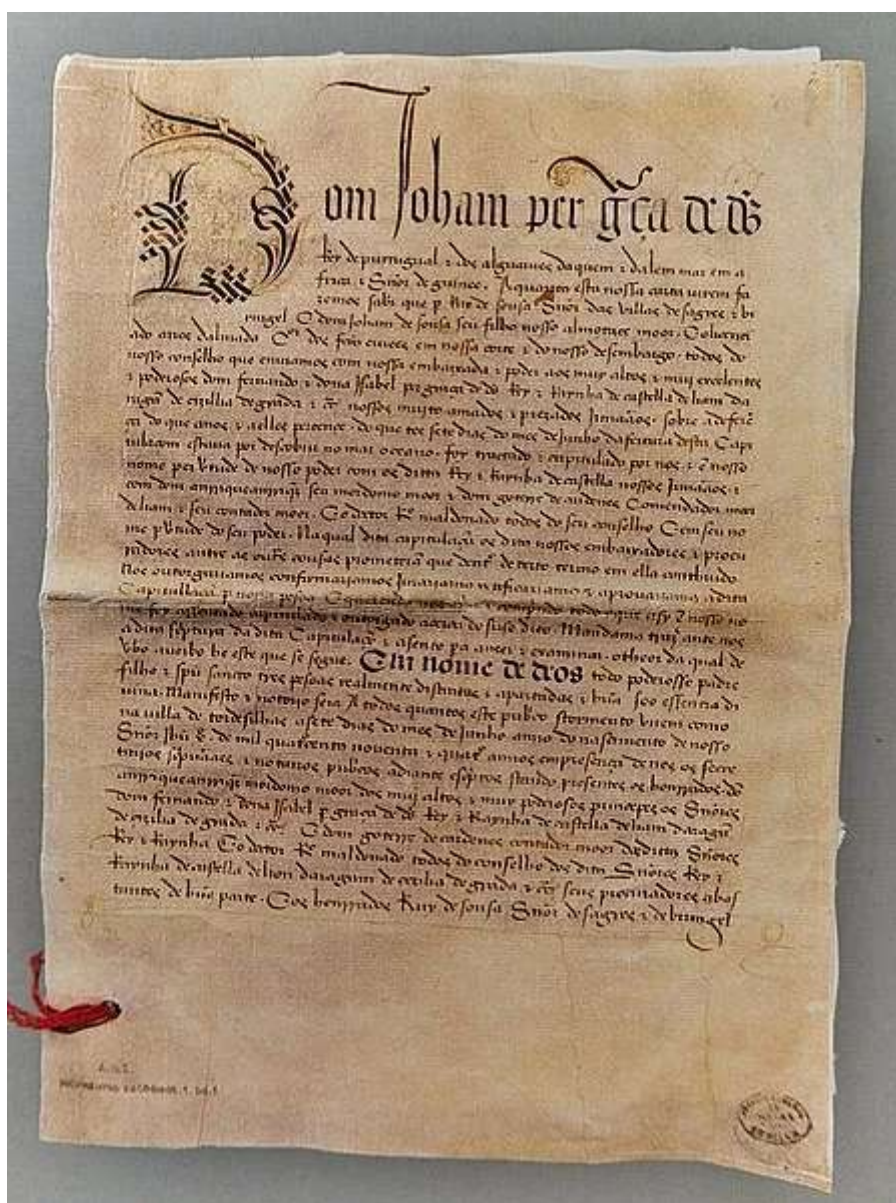 Dom Joham per gͣça de d̃s
Rey de purtugual & dos alguarues daquem & dalem mar em a
frica & Señor de guinee. A quantos esta nossa carta virem fa
zemos saber que per Ruy de sousa Señor das villas de sagres & bi
ringel E dom Joham de sousa seu filho nosso almotace moor. E o licencia
ado ayres dalmada em nossa corte & do nosso desembargo. todos do
nosso conselho que enviamos com nossa embaixada & poder aos muy altos & muy excelentes
& poderosos dom fernando & dona Isabel per graça de ds̃ Rey & Raynha de castella de liam da
ragã de cizilia de grãda & c̃. nossos muyto amados & prezados Irmaãos. sobre a deferẽ
ça do que a nos & a elles pertence. do que tee sete dias do mes de Junho da feitura desta Capi
tulaçam estaua por descobrir no mar oceano. foy trautado & capitulado por nos. & ẽ nosso
nome per virtude de nosso poder com os dittos Rey & Raynha de castella nossos Irmaãos. &
com dom anrrique anrriqz̃ seu mordomo moor & dom goterre de cardenes Comendador moor
de liam & seu contador moor. E o dator Rº maldonado todos do seu conselho E em seu no
me per virtude do seu poder. Na qual dita capitulaçã os dito nossos embaixadores & procu
radores antre as outras cousas prometerã que dentro de certo termo em ella contheudo
Nos outorgariamos confirmariamos Jurariamos ratificariamos & aprouariamos a dita
Capitullaçã per nossa pesoa E querendo & comprindo todo o que asy ẽ nosso no
me foy asentado capitulado & outorgado acerca do suso dito. Mandamos trazer ante nos
a dita scriptura da dita Capitulaçã & asento pera a veer & examinar. o theor da qual de
verbo a verbo he este que se segue. Em nome de deos todo poderosse padre
filho & spũ santo tres pesoas realmente distintas & apartadas & hũa soo essencia di
uina. Manifesto & notorio seia A todos quantos este pubrico stormento virem como
na villa de tordesilhas a sete dias do mes de Junho anno do nascimento de nosso
Señor Jhũ x̃ de mil quatrocentos nouenta & quatro annos em presença de nos os secre
tarios scripuãaes & notarios pubricos adiante escriptos stando presentes os honrrados. dõ
anrrique anrriqz̃ mordomo moor dos muy altos & muy poderosos principes os Señores
dom fernando & dona Isabel per graça de ds̃ Rey & Raynha de castella de liam daragã
de cizilia de grãda & c̃. E dom goterre de cardenes contador moor dos dittos Señores
Rey & Raynha E o dator Rº maldonado todos do conselho dos ditos Señores Rey &
Raynha de castella de liom daragam de cecilia de grãda & c̃. seus procuradores abos
tantes de hũa parte. E os honrrados Ruy de sousa Señor de sagres & de biringel
A.G.I.